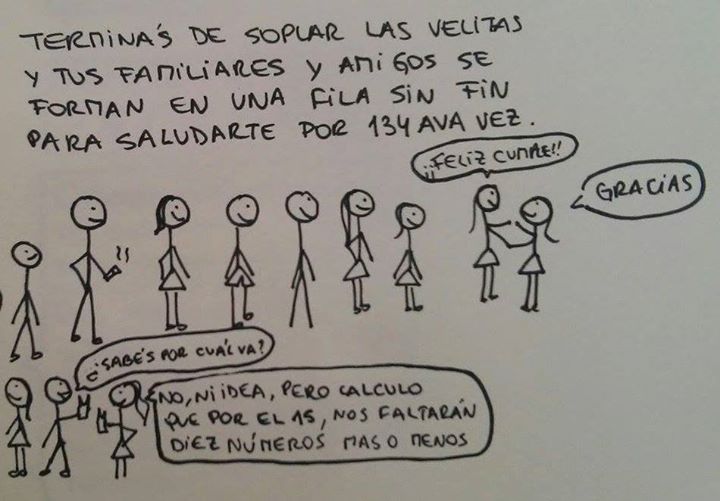 TERMINÁS DE SOPLAR LAS VELITAS
Y TUS FAMILIARES Y AMIGOS SE
FORMAN EN UNA FILA SIN FIN
PARA SALUDARTE POR 134AVA VEZ.
¡¡FELIZ CUMPLE!!
GRACIAS
¿SABÉS POR CUÁL VA?
NO, NI IDEA, PERO CALCULO
QUE POR EL 15, NOS FALTARÁN
DIEZ NÚMEROS MAS O MENOS